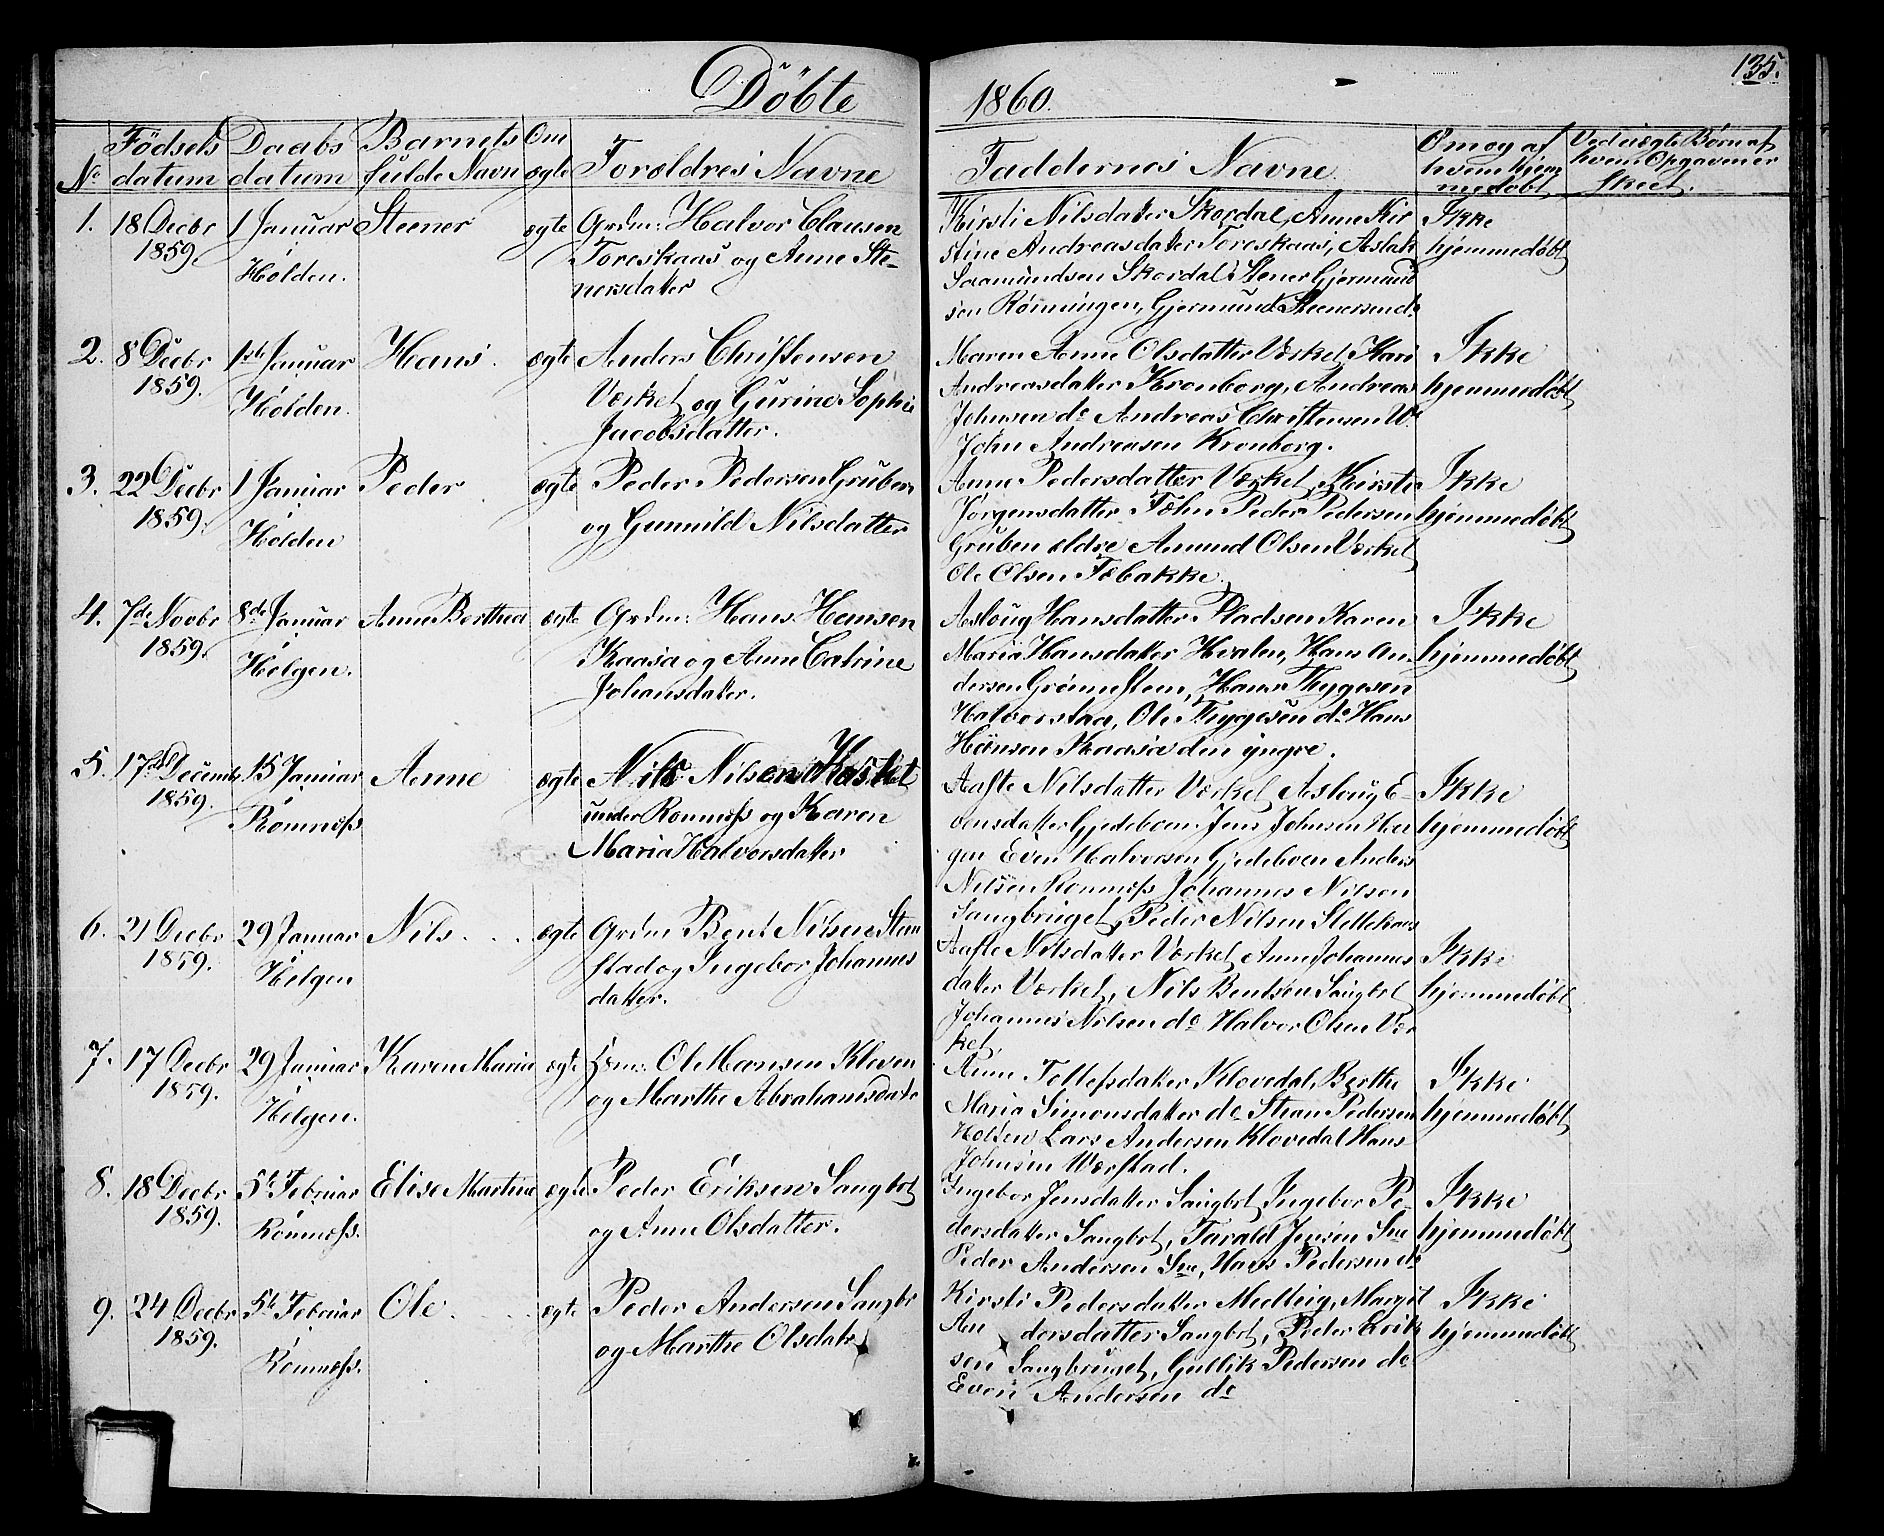 Döbte 1860.
135.
No Födsels datum Daabs datum Barnets fulde Navn Om ægte Forældres Navne Faddernes Navne Om og af hvem hjemmedøbt Ved uægte Børn af hvem Opgaven er skeet.
1. 18 Decbr 1 Januar Steener ægte Grdm: Halvor Clausen
1859. Holden. Foreskaas og Anne Ste-
nersdatter
Kirsti Nilsdatter Skordal, Anne Kir
stine Andreasdatter Foreskaas, Aslak
Saamundsen Skordal Stener Gjermund
sen Rønningen, Gjermund Steenersen do
Ikke
hjemmedøbt
2. 8 Decbr 1ste Januar Hans. ægte Anders Christensen
1859. Holden. Værket og Gurine Sophie
Jacobsdatter.
Maren Anne Olsdatter Værket, Kari
Andreasdatter Kronborg, Andreas
Johnsen do Andreas Christensen V.
John Andreasen Kronborg.
Ikke
hjemmedøbt
3. 22 Decbr 1 Januar Peder ægte Peder Pedersen Gruben
1859. Holden og Gunnild Nilsdatter
Anne Pedersdatter Værket, Kirstie
Jørgensdatter Fæhn Peder Pedersen
Gruben ældre Amund Olsen Værket
Ole Olsen Fæbakke.
Ikke
hjemmedøbt
4. 7de Novbr 8de Januar Anne Berthea ægte Grdm: Hans Hansen
1859. Helgen. Kaasa og Anne Catrine
Johansdatter.
Asloug Hansdatter Pladsen Karen
Maria Hansdatter Hvalen, Hans An-
dersen Grönnesteen, Hans Thygesen
Halvorstaa, Ole Thygesen do Hans
Hansen Kaasa den yngre.
Ikke
hjemmedøbt
5. 17de Decemb 15 Januar Anne ægte Nils Nilsen Kaslet
1859. Romnæss under Romnæss og Karen
Maria Halvorsdatter
Aaste Nilsdatter Værket Asloug E-
vensdatter Gjedeboen Jens Johnsen Hel
gen Even Halvorsen Gjedeboen Anders
Nilsen Romnæss Johannes Nilsen
Saugbruget, Peder Nilsen Slettekaas
Ikke
hjemmedøbt
6. 21 Decbr 29 Januar Nils. ægte Grdm Bent Nilsen Sten
1859. Helgen stad og Ingebor Johannes
datter.
Aaste Nilsdatter Værket Anne Johannes
datter Værket, Nils Bentsen Saugbot
Johannes Nilsen do Halvor Olsen Vær
ket,
Ikke
hjemmedøbt
7. 17 Decbr 29 Januar Karen Maria ægte Ole Hansen Kleven
1859. Helgen. og Marthe Abrahamsdate
Anne Tollefsdatter Klovedal, Berthe
Maria Simonsdatter do Stian Pedersen
Holsen Lars Andersen Klovedal Hans
Johnsen Værstad.
Ikke
hjemmedøbt
8. 18 Decbr 5te Februar Elise Martine ægte Peder Eriksen Saugbot
1859. Romnæss. og Anne Olsdatter.
Ingebor Jensdatter Saugbot, Ingebor Pe-
dersdatter Saugbot, Tarald Jensen
Peder Andersen Hans Pedersen do
Ikke
hjemmedøbt
9. 24 Decbr 5te Februar Ole. ægte Peder Andersen Saugbr
1859. Romnæss. og Marthe Olsdatr
Kirsti Pedersdatter Medteig, Margit
An dersdatter Saugbot, Peder Erik
sen Saugbruget, Gullik Pedersen do
Even Andersen do
Ikke
hjemmedøbt